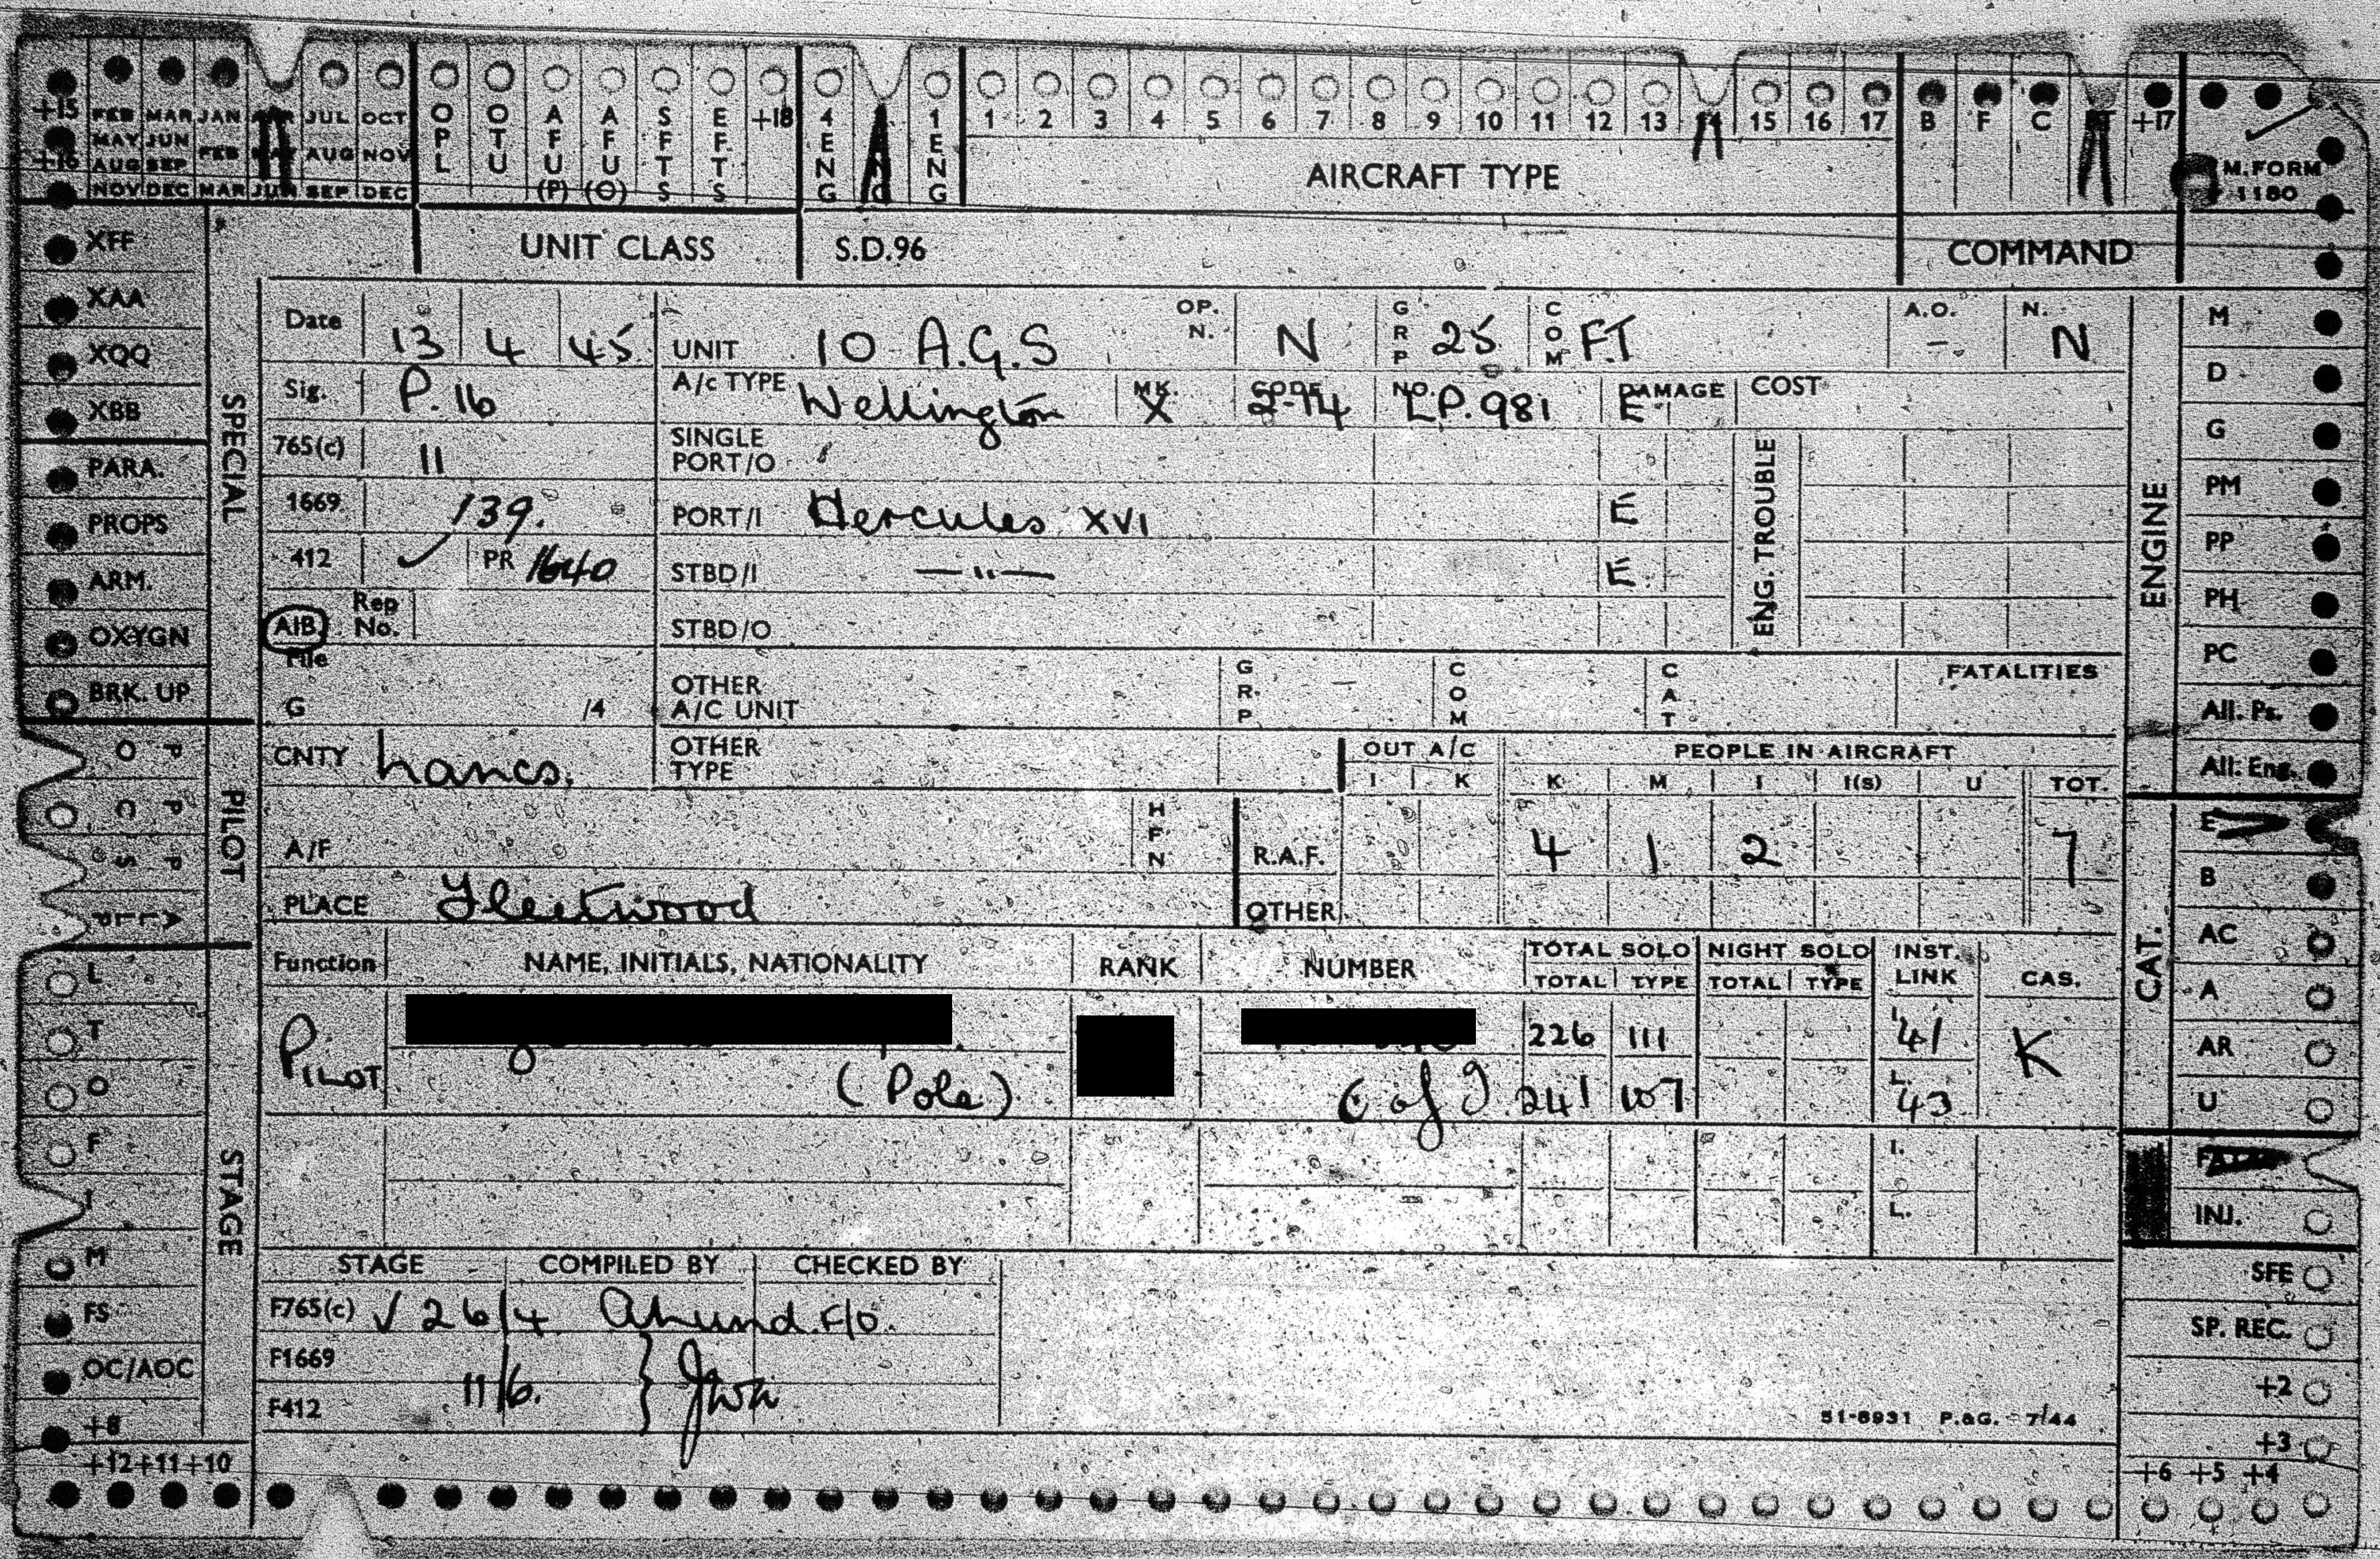 +15 FEB MAR JAN APR JUL OCT O P L O T U A F U (P) A F U (O) S F T S E F T S +18 4 E N G 1 E N G 1 2 3 4 5 6 7 8 9 10 11 12 13 14 15 16 17 B F C FT +17
+16 MAY JUN FEB MAY AUG NOV
AUG SEP
NOV DEC MAR JUN SEP DEC
AIRCRAFT TYPE
M. FORM
1180
UNIT CLASS S.D.96 COMMAND
XFF
XAA
XQQ
XBB
PARA.
PROPS
ARM.
OXYGN
BRK. UP
SPECIAL
P O
P U
P S
ALL P
PILOT
L
T
O
F
I
M
FS
OC/AOC
+8
+12+11+10
STAGE
Date 13 4 45 UNIT 10 A.G.S OP. N. N GRP 25 COM F.T A.O. - N. N
Sig. P.16 A/c TYPE Wellington MK. X CODE 2-94 NO. LP.981 DAMAGE E COST
765(c) 11 SINGLE PORT/O
1669 139. PORT/I Hercules XVI E
412 ✓ PR 1640 STBD/I —"— E
ENG. TROUBLE
AIB Rep No. STBD/O
File
G /4 OTHER A/C UNIT GRP — COM CAT FATALITIES
CNTY Lancs. OTHER TYPE OUT A/C PEOPLE IN AIRCRAFT
I K K M I I(S) U TOT.
A/F HFN R.A.F. 4 1 2 7
PLACE Fleetwood OTHER
Function NAME, INITIALS, NATIONALITY RANK NUMBER TOTAL SOLO NIGHT SOLO INST. LINK CAS.
TOTAL TYPE TOTAL TYPE
PILOT 226 111 - - I. 41 K
(Pole) 241 107 L. 43
I.
L.
STAGE COMPILED BY CHECKED BY
F765(c) √ 26/4 F/O.
F1669
11/6.
F412
51-8931 P.&G. - 7/44
M
D
G
PM
PP
PH
PC
All. Ps.
All. Eng.
ENGINE
E
B
AC
A
AR
U
CAT.
INJ.
SFE
SP. REC.
+2
+3
+6 +5 +4